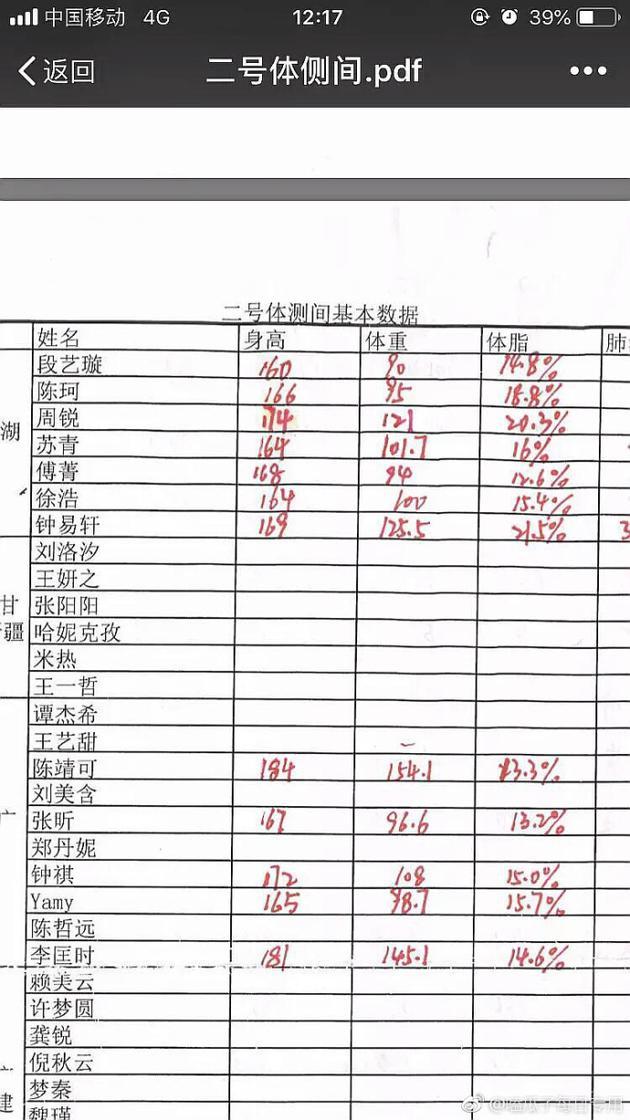 中国移动 4G 12:17 39%
返回 二号体侧间.pdf
二号体测间基本数据
姓名 身高 体重 体脂 肺
段艺璇 160 90 14.8%
陈珂 166 95 18.8%
湖
周锐 174 121 20.3%
苏青 164 101.7 16%
傅菁 168 94 12.6%
徐浩 164 100 15.4%
钟易轩 169 125.5 21.5% 3
刘洛汐
王妍之
甘
张阳阳
疆
哈妮克孜
米热
王一哲
谭杰希
王艺甜
陈靖可 184 154.1 13.3%
刘美含
广
张昕 167 96.6 13.2%
郑丹妮
钟祺 172 108 15.0%
Yamy 165 98.7 15.7%
陈哲远
李匡时 181 145.1 14.6%
赖美云
许梦圆
龚锐
倪秋云
建
梦秦
魏瑾